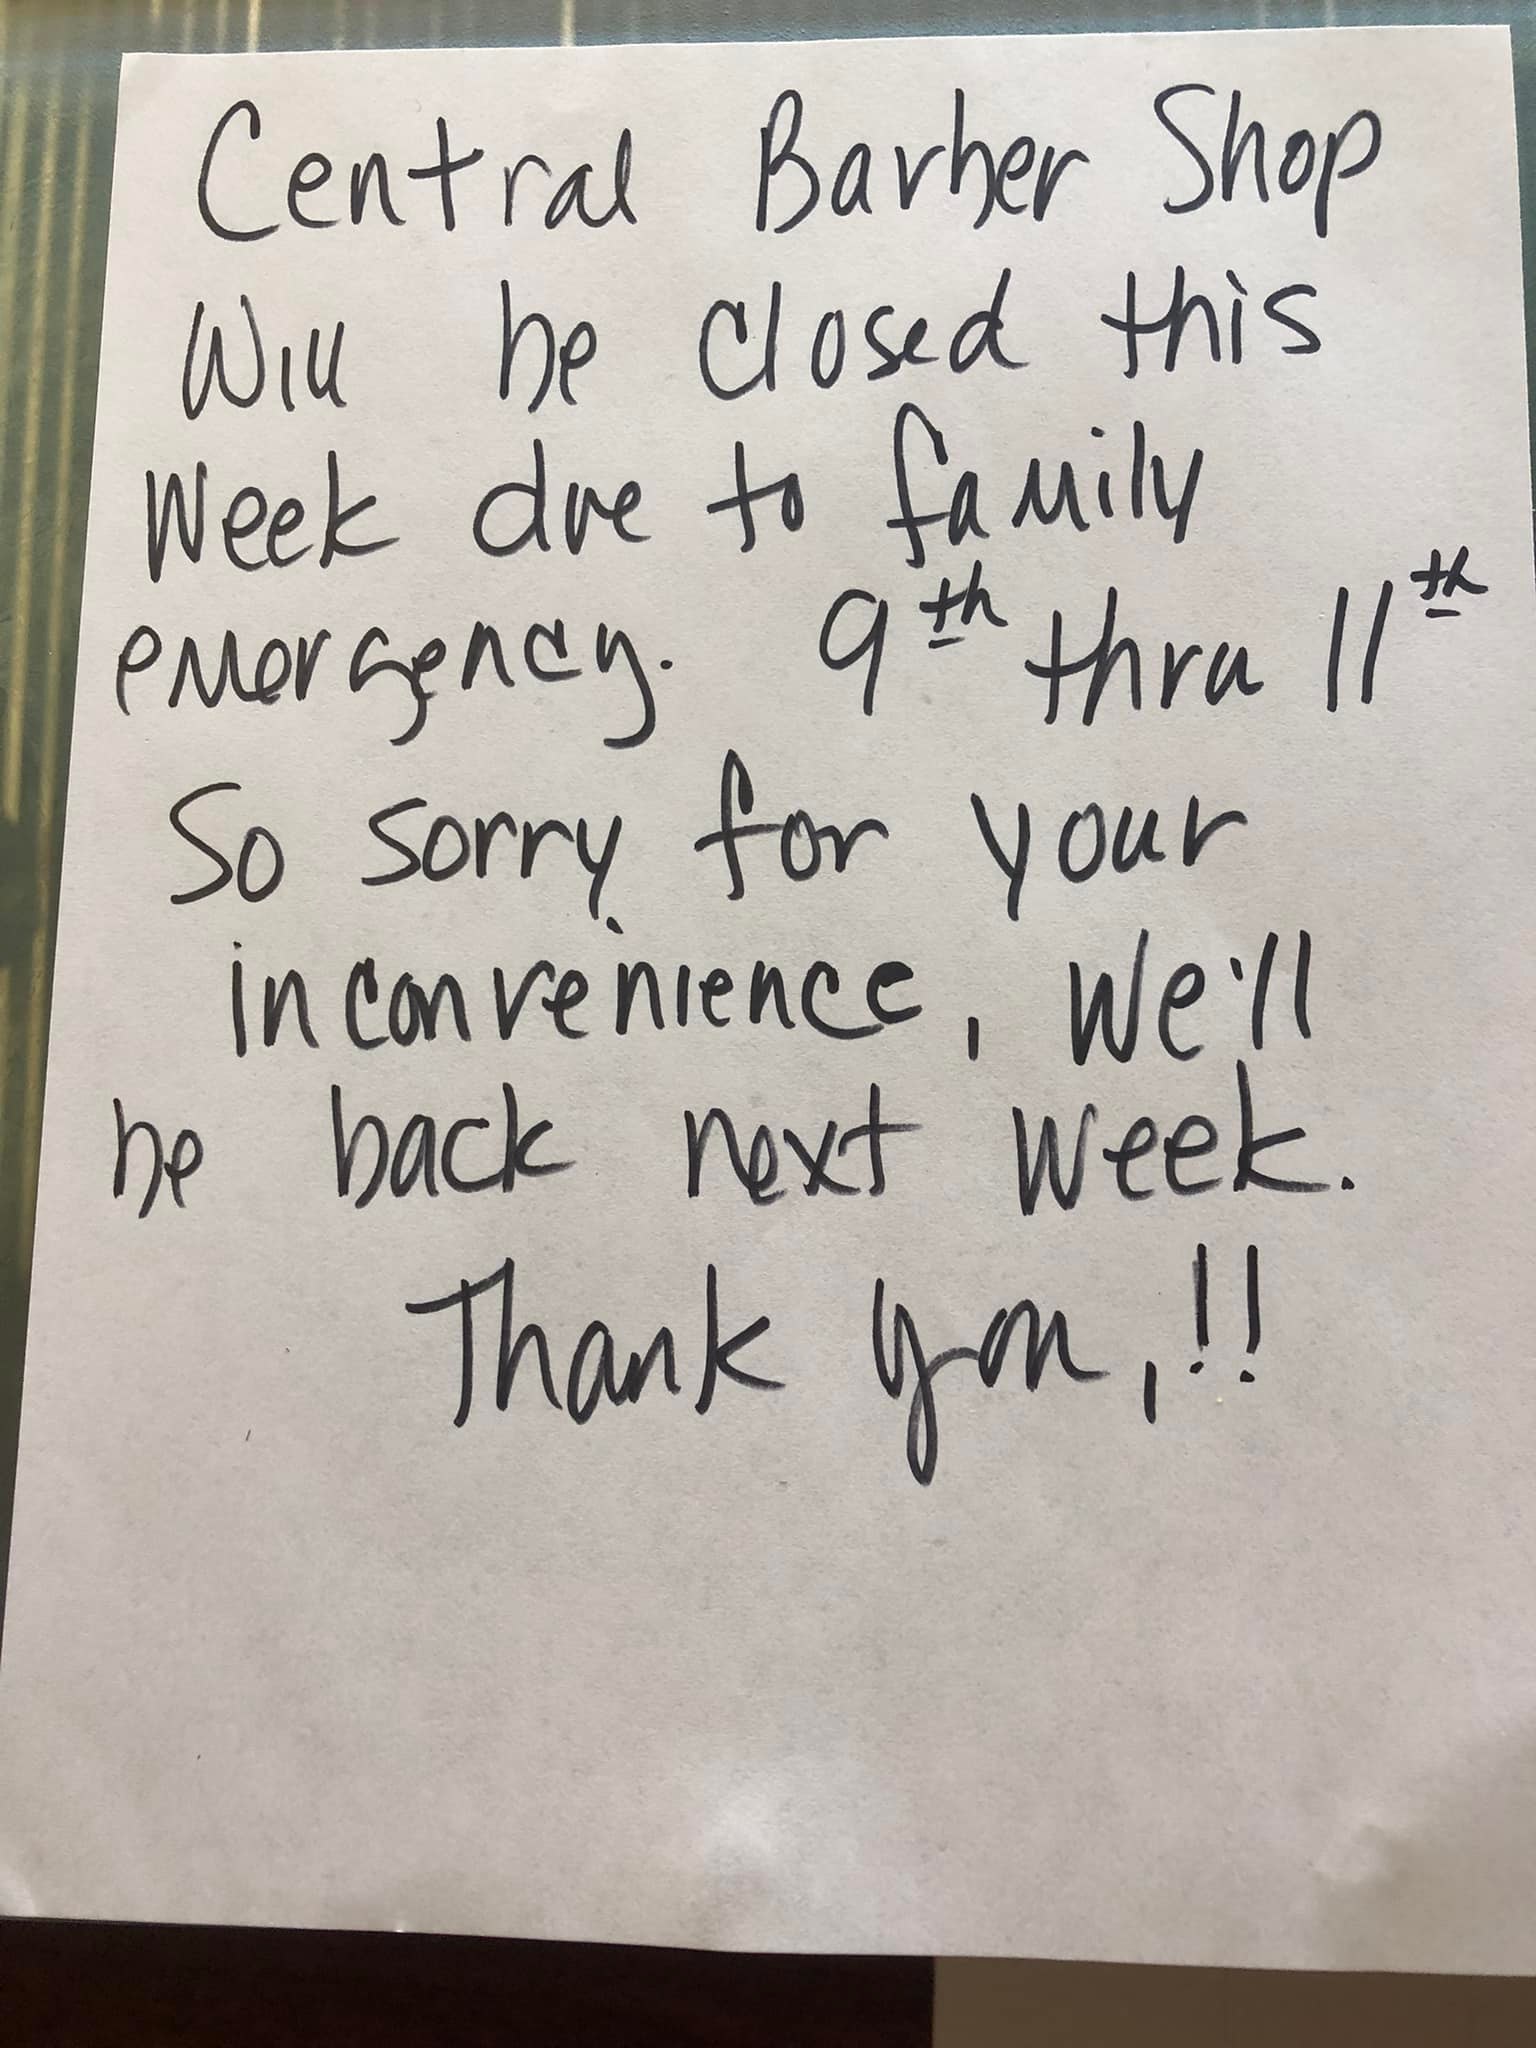 Central Barber Shop
Will be closed this
week due to family
emergency. 9th thru 11th
So sorry for your
inconvenience, we'll
be back next week.
Thank you,!!